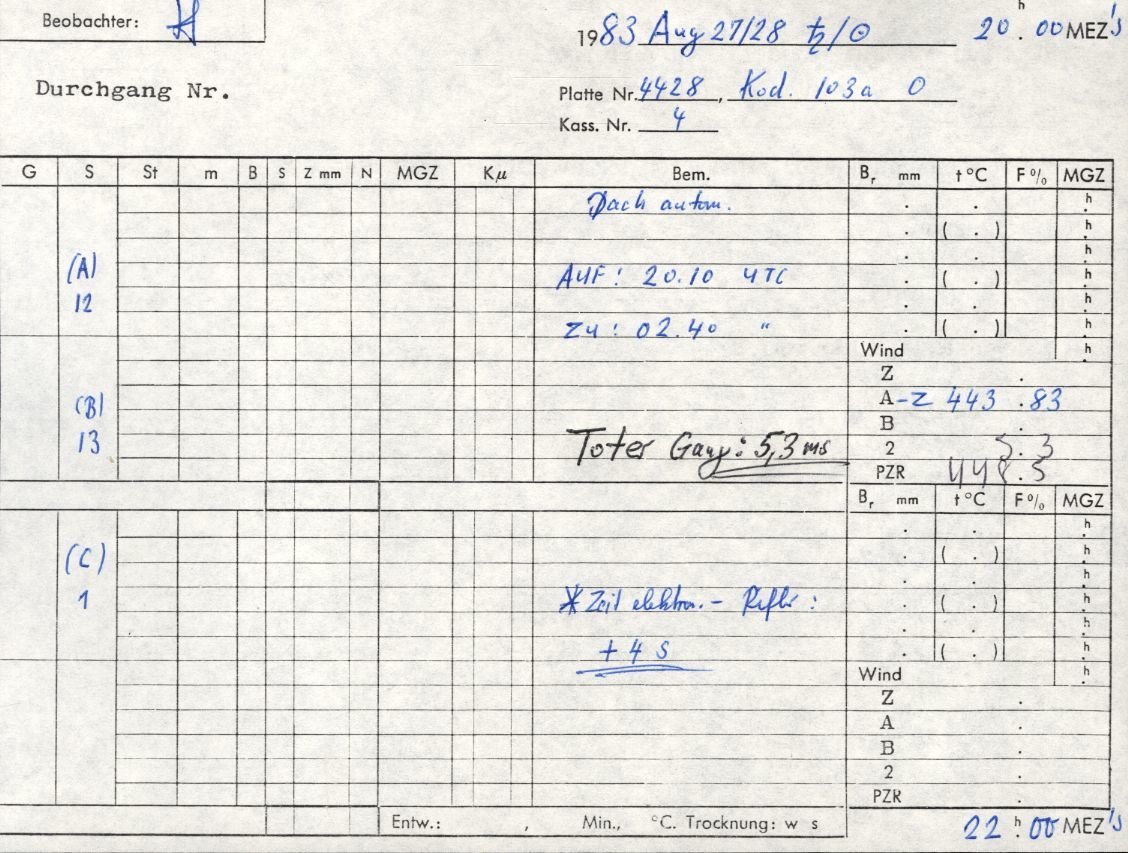 Beobachter:
1983 Aug 27/28 ♄/⊙ 20 h . 00 MEZ's
Durchgang Nr.
Platte Nr. 4428 , Kod. 103a O
Kass. Nr. 4
G S St m B S Z mm N MGZ Kμ Bem. Br mm t °C F % MGZ
Dach autom. . . h
. ( . ) h
. . h
(A) AUF: 20.10 UTC . ( . ) h
12 . . h
ZU: 02.40 " . ( . ) h
Wind h
Z .
(B) A-Z 443 .83
B .
13 Toter Gang: 5,3 ms 2 5.3
PZR 448.5
Br mm t °C F % MGZ
. . h
(C) . ( . ) h
. . h
1 *Zeit elektron. - Refler : . ( . ) h
. . h
+ 4 s . ( . ) h
Wind h
Z .
A .
B .
2 .
PZR .
Entw.: , Min., °C. Trocknung: w s
22 h . 00 MEZ's